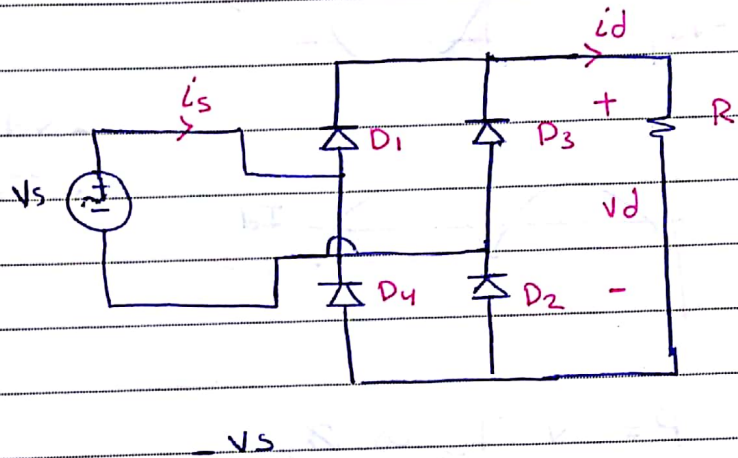 id
is
+
R
D1
D3
Vs
+
vd
D4
D2
-
_ vs